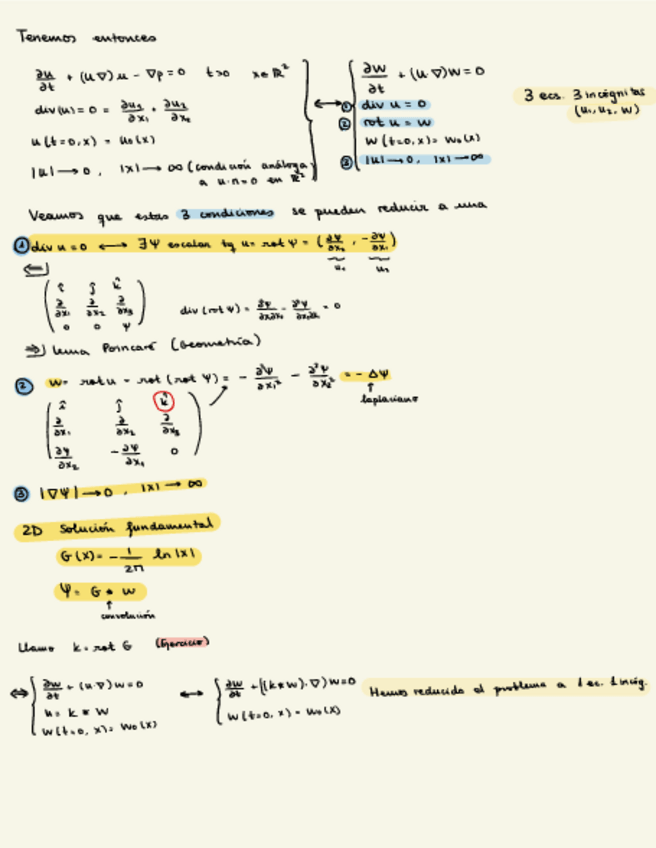 Tenemos entonces
∂u/∂t + (u·∇)u - ∇p = 0   t>0   x∈ℝ²
div(u) = 0 = ∂u₁/∂x₁ + ∂u₂/∂x₂
u(t=0,x) = u₀(x)
|u| → 0, |x| → ∞ (condición análoga
a u·n=0 en ℝ²)
↔
∂w/∂t + (u·∇)w = 0
① div u = 0
② rot u = w
w(t=0,x) = w₀(x)
③ |u| → 0, |x| → ∞
3 ecs. 3 incógnitas
(u₁, u₂, w)
Veamos que estas 3 condiciones se pueden reducir a una
① div u = 0 ↔ ∃ Ψ escalar tq u = rot Ψ = (∂Ψ/∂x₂, -∂Ψ/∂x₁)
u₁   u₂
⇐]
î   ĵ   k̂
∂/∂x₁   ∂/∂x₂   ∂/∂x₃
0   0   Ψ
div(rot Ψ) = ∂²Ψ/∂x₁∂x₂ - ∂²Ψ/∂x₁∂x₂ = 0
⇒] Lema Poincaré (Geometría)
② w = rot u = rot(rot Ψ) = - ∂²Ψ/∂x₁² - ∂²Ψ/∂x₂² = -ΔΨ
↑
laplaciano
î   ĵ   k̂
∂/∂x₁   ∂/∂x₂   ∂/∂x₃
∂Ψ/∂x₂   -∂Ψ/∂x₁   0
③ |∇Ψ| → 0, |x| → ∞
2D Solución fundamental
G(x) = - 1/2π ln|x|
Ψ = G * w
↑
convolución
Llamo k = rot G (Ejercicio)
⇔ ∂w/∂t + (u·∇)w = 0
u = k * w
w(t=0, x) = w₀(x)
↔ ∂w/∂t + ((k*w)·∇)w = 0
w(t=0, x) = w₀(x)
Hemos reducido el problema a 1 ec. 1 incóg.